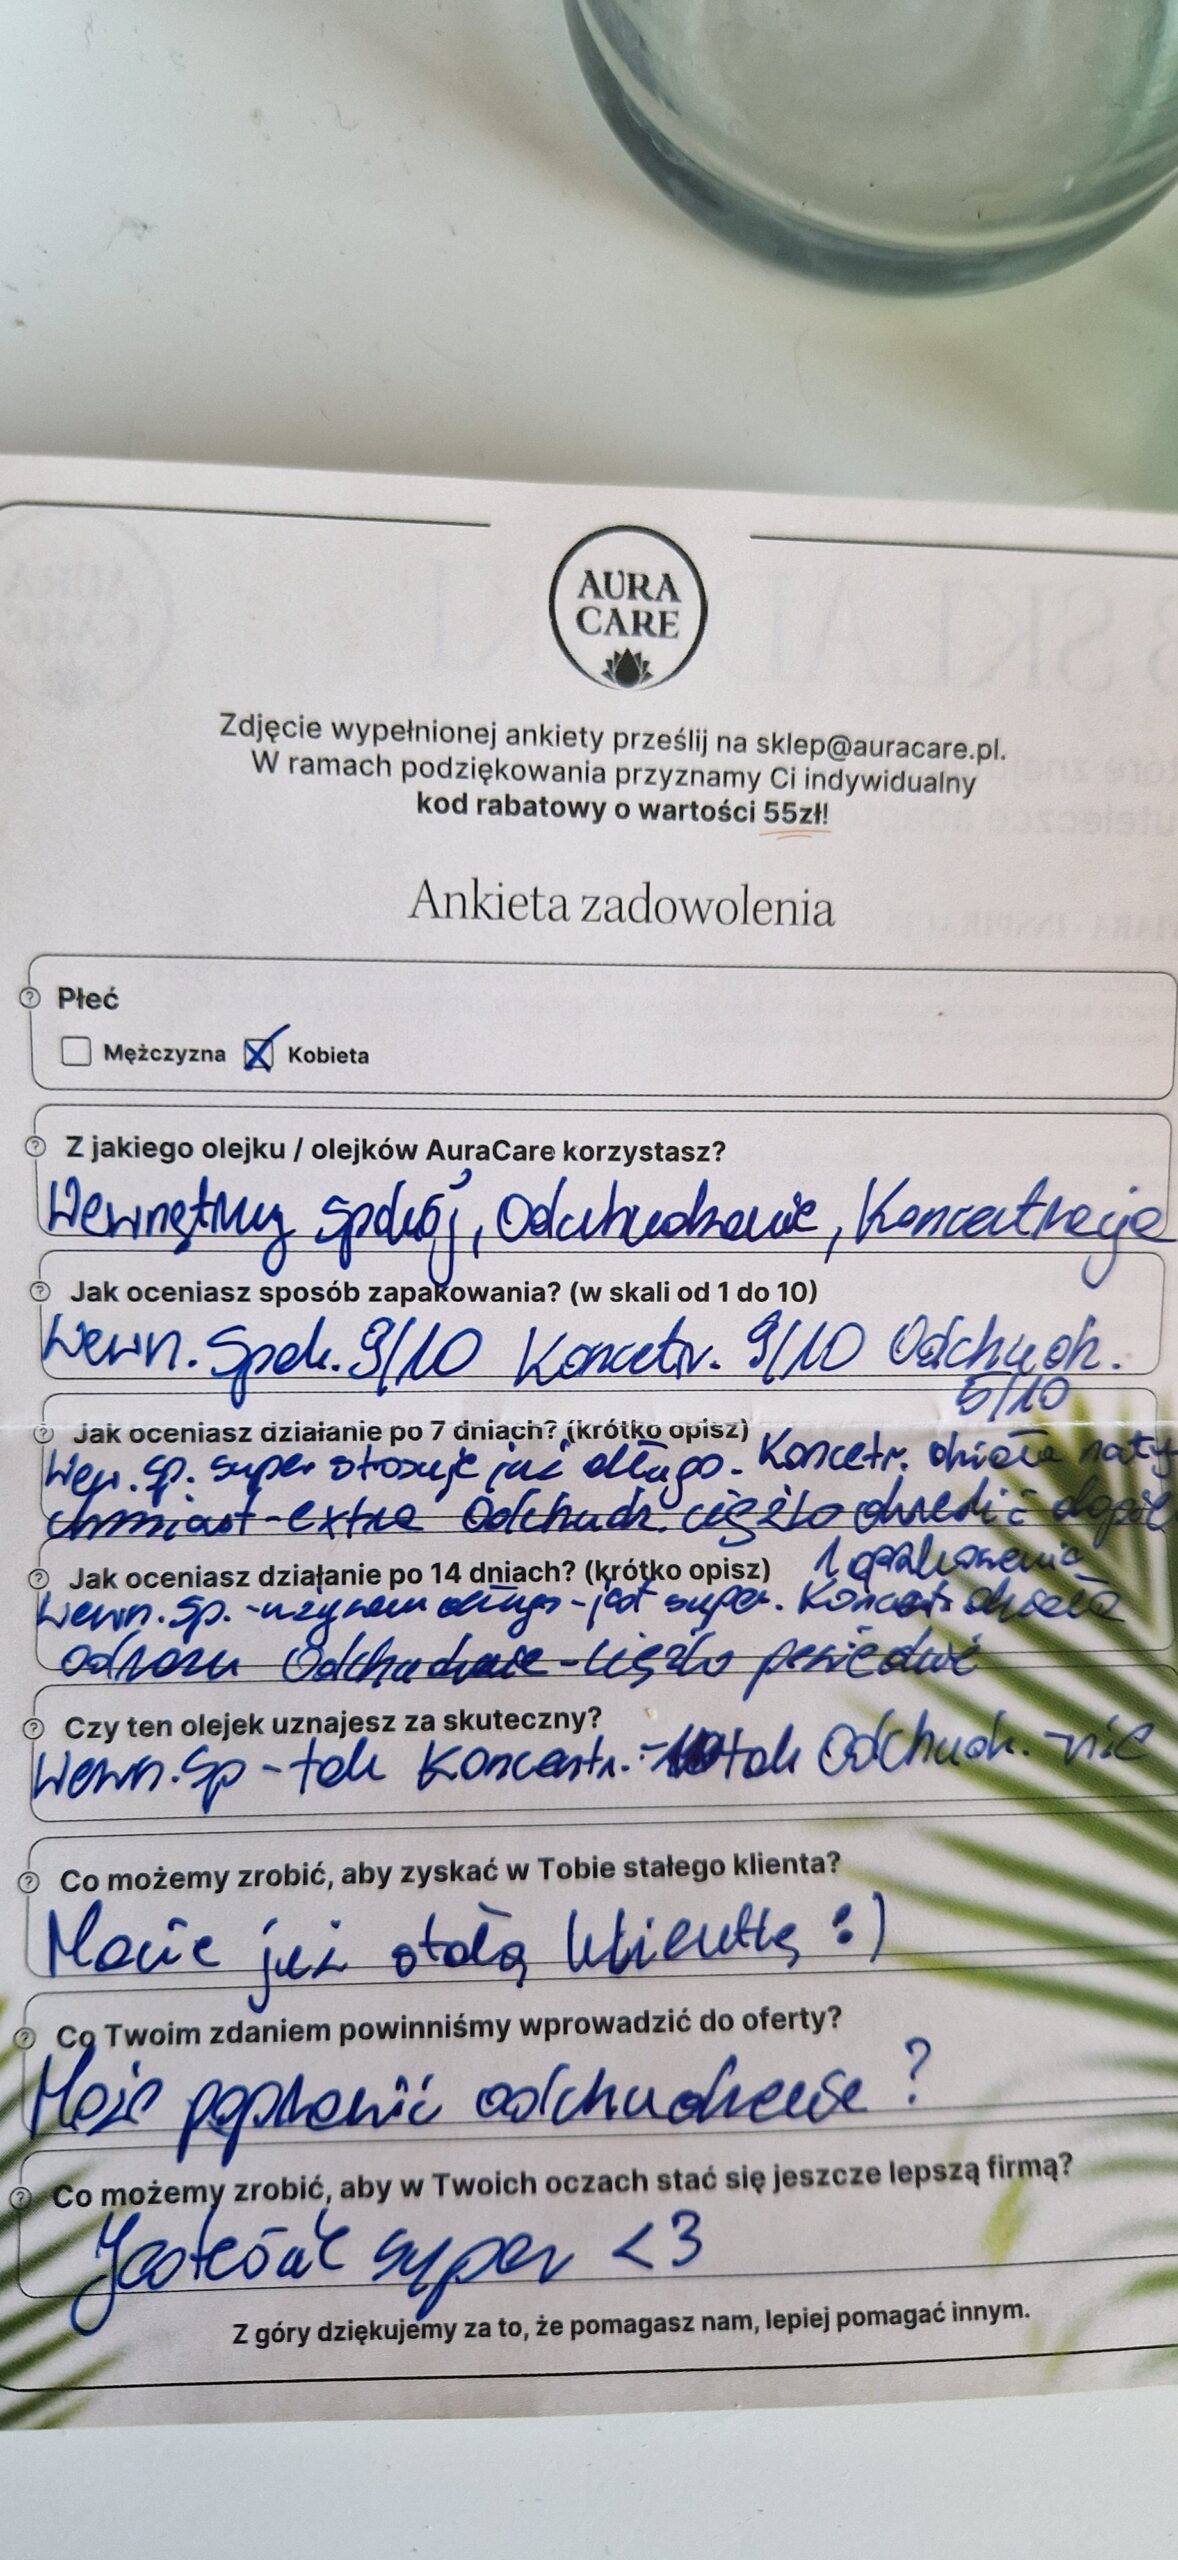 AURA
CARE
Zdjęcie wypełnionej ankiety prześlij na sklep@auracare.pl.
W ramach podziękowania przyznamy Ci indywidualny
kod rabatowy o wartości 55zł!
Ankieta zadowolenia
Płeć
Mężczyzna Kobieta
Z jakiego olejku / olejków AuraCare korzystasz?
Wewnętrzny spokój, Odchudzanie, Koncentracja
Jak oceniasz sposób zapakowania? (w skali od 1 do 10)
Wewn. Spok. 9/10 Koncetr. 9/10 Odchudz.
5/10
Jak oceniasz działanie po 7 dniach? (krótko opisz)
Wew. sp. super stosuję już długo. Koncetr. działa naty
chmiast - extra Odchudz. ciężko określić dopie
1 opakowanie
Jak oceniasz działanie po 14 dniach? (krótko opisz)
Wewn. sp. - używam długo - jest super. Koncentr. działa
odrazu Odchudzanie - ciężko powiedzieć
Czy ten olejek uznajesz za skuteczny?
Wewn. Sp - tak Koncentr. - tak Odchudz. - nie
Co możemy zrobić, aby zyskać w Tobie stałego klienta?
Macie już stałą klientkę :)
Co Twoim zdaniem powinniśmy wprowadzić do oferty?
Może poprawić odchudzanie ?
Co możemy zrobić, aby w Twoich oczach stać się jeszcze lepszą firmą?
Jesteście super <3
Z góry dziękujemy za to, że pomagasz nam, lepiej pomagać innym.